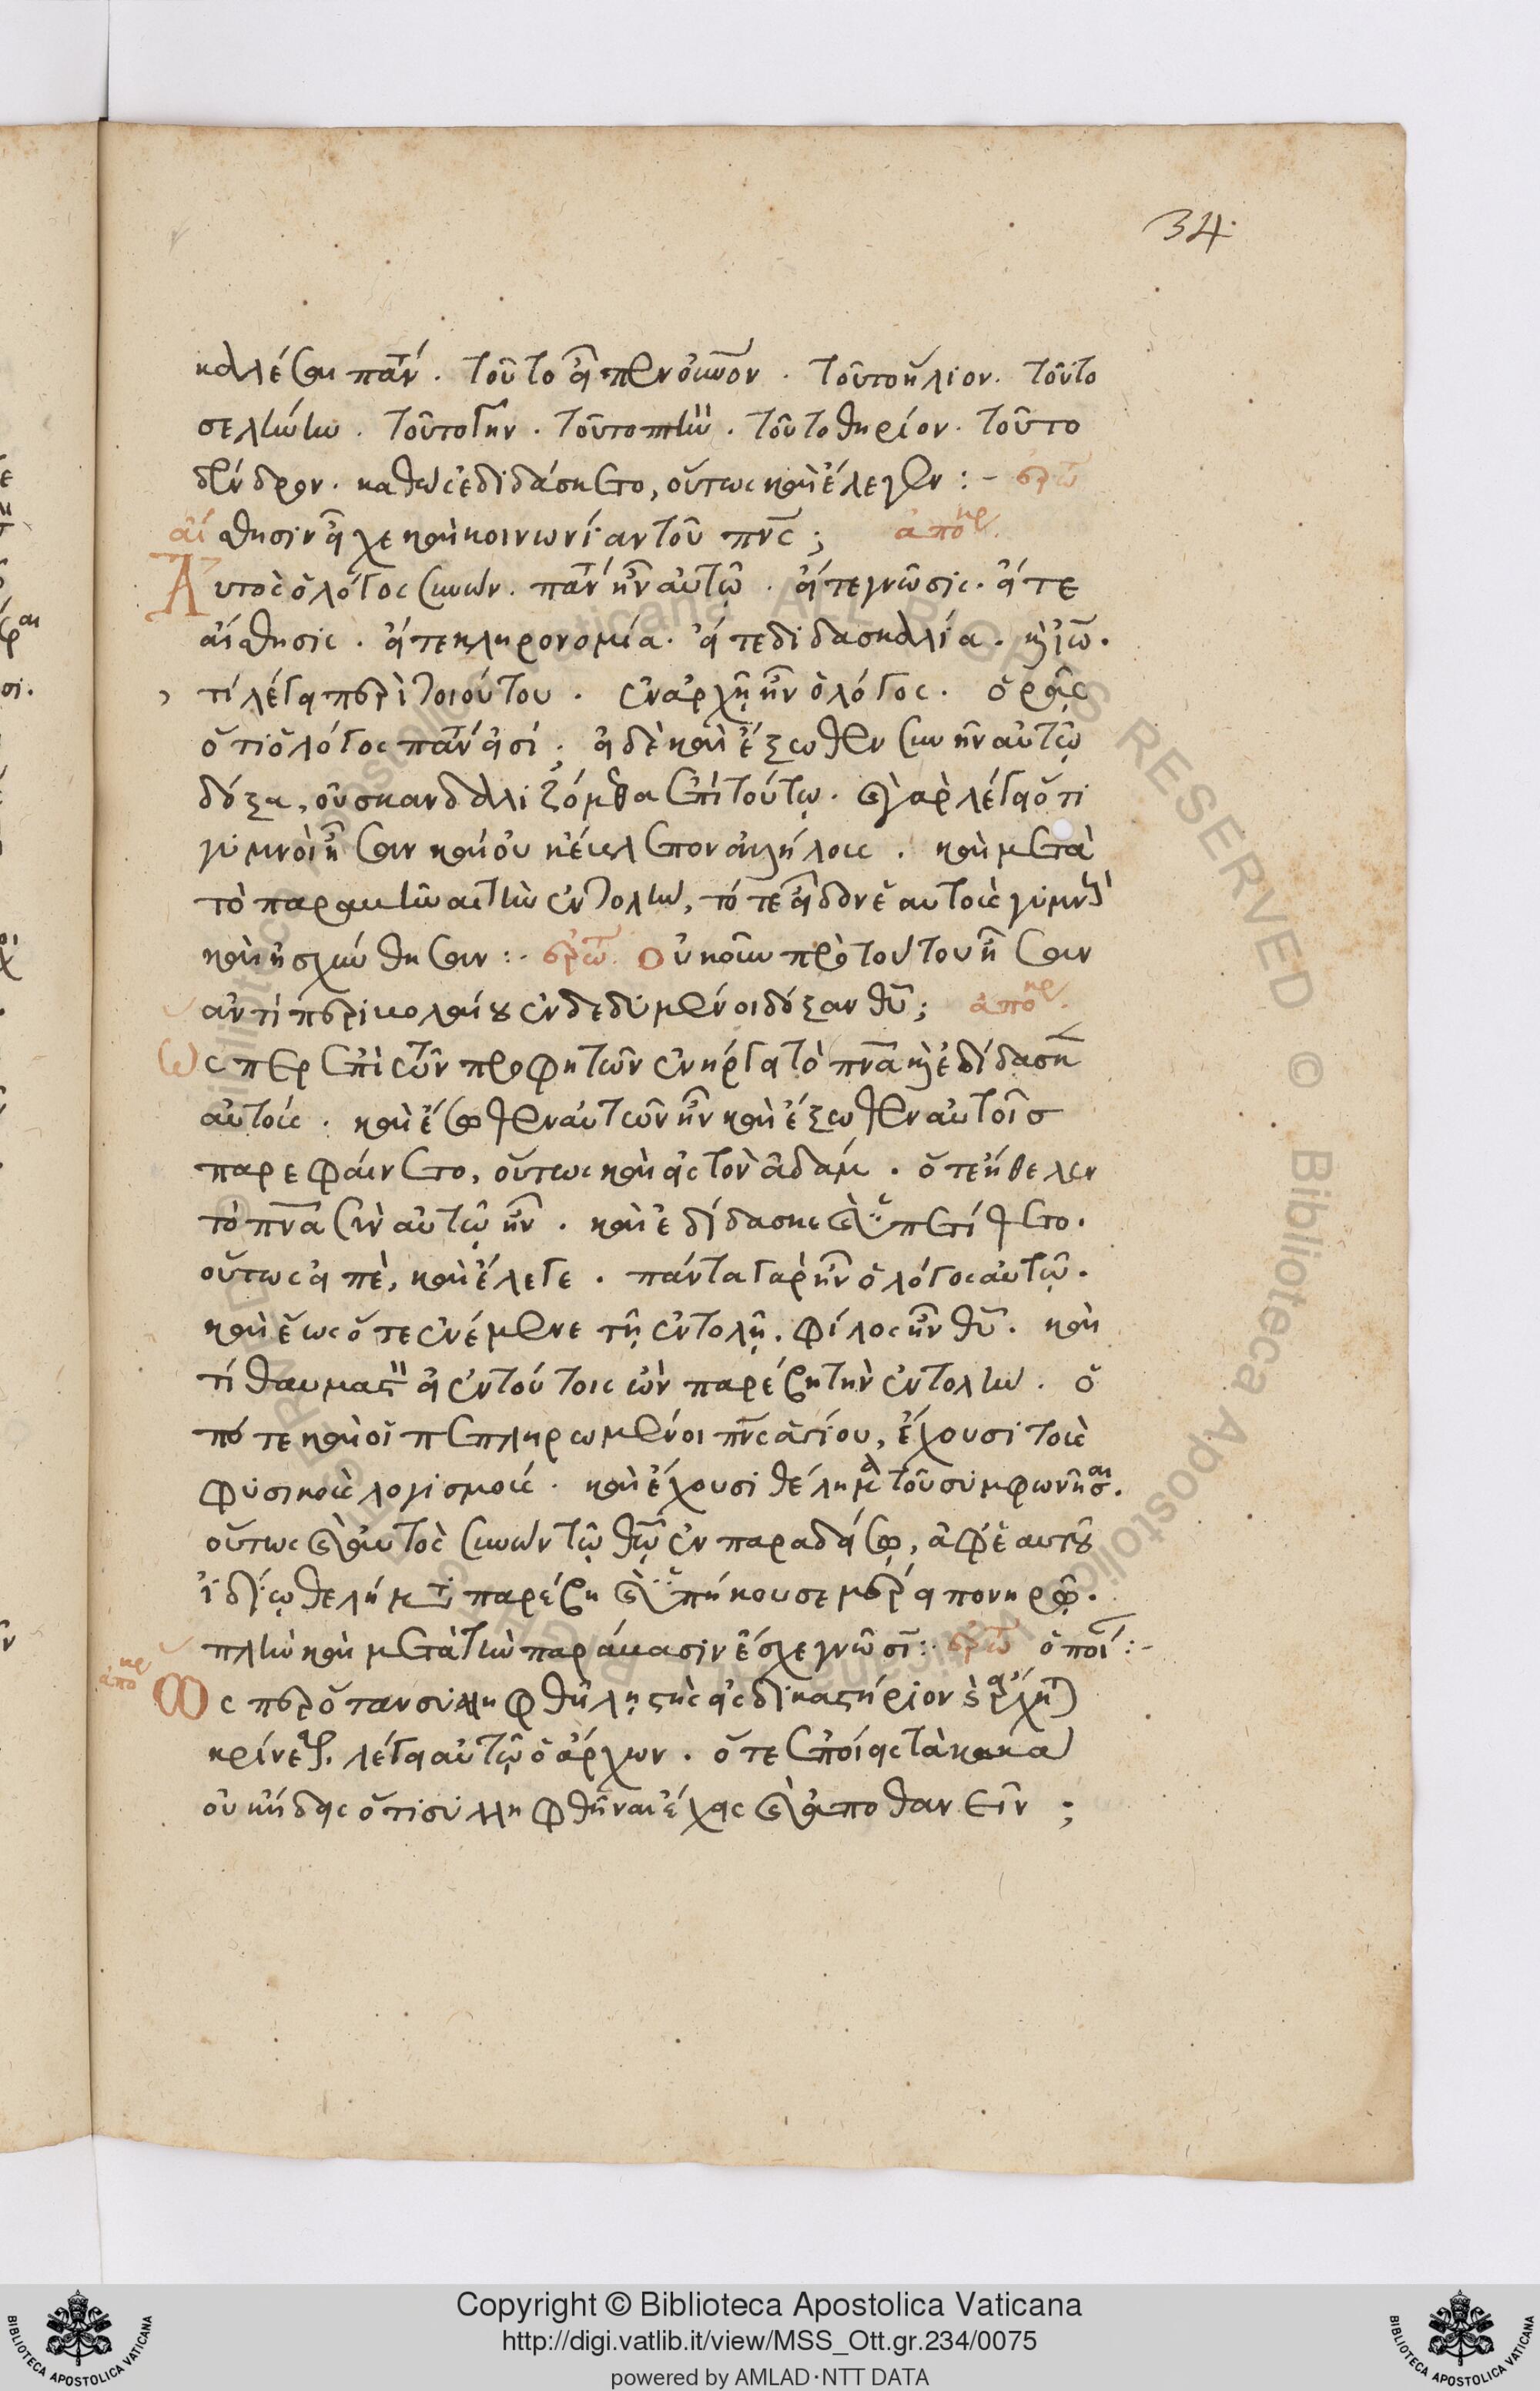 34
καλέσαι πάντα. τοῦτο εἶπεν οὐνον. τοῦτο ἥλιον. τοῦτο
σελήνην. τοῦτο γῆν. τοῦτο πτην. τοῦτο θηρίον. τοῦτο
δένδρον. καθὼς ἐδιδάσκετο, οὕτως καὶ ἔλεγεν :- ἐρώ
αἴσθησιν εἶχε καὶ κοινωνίαν τοῦ πνς; ἀποκρ.
Αὐτὸς ὁ λόγος συνὼν. πάντα ἦν αὐτῷ. εἴτε γνῶσις. εἴτε
αἴσθησις. εἴτε κληρονομία. εἴτε διδασκαλία. καὶ ἰω.
τί λέγει περὶ τοιούτου. ἐν ἀρχῇ ἦν ὁ λόγος. ὁρᾷς
ὅτι ὁ λόγος πάντα εἰσί. εἰ δὲ καὶ ἔξωθεν συνῆν αὐτῷ
δόξα, οὐ σκανδαλιζόμεθα ἐπὶ τούτῳ. καὶ γὰρ λέγει ὅτι
γυμνοὶ ἦσαν καὶ οὐκ ἔβλεπον ἀλλήλοις. καὶ μετὰ
τὸ παραβῆναι τὴν ἐντολὴν, τότε εἶδον ἑαυτοὺς γυμνοὺς
καὶ ᾐσχύνθησαν :- ἐρώ. Οὐκοῦν πρὸ τούτου ἦσαν
ἀντὶ περιβολαίου ἐνδεδυμένοι δόξαν θῦ; ἀποκρ.
Ὥσπερ ἐπὶ τῶν προφητῶν ἐνήργει τὸ πνᾶ καὶ ἐδίδασκεν
αὐτούς. καὶ ἔσωθεν αὐτῶν ἦν καὶ ἔξωθεν αὐτοῖς
παρεφαίνετο, οὕτως καὶ εἰς τὸν ἀδάμ. ὅτε ἤθελεν
τὸ πνᾶ σὺν αὐτῷ ἦν. καὶ ἐδίδασκε καὶ ὑπετίθετο.
οὕτως εἰπὲ, καὶ ἔλεγε. πάντα γὰρ ἦν ὁ λόγος αὐτῷ.
καὶ ἕως ὅτε ἐνέμενε τῇ ἐντολῇ, φίλος ἦν θῦ. καὶ
τί θαυμαστὸν εἰ ἐν τούτοις ὢν παρέβη τὴν ἐντολὴν. ὁ
πότε καὶ οἱ πεπληρωμένοι πνς ἁγίου, ἔχουσι τοὺς
φυσικοὺς λογισμούς. καὶ ἔχουσι θέλημα τοῦ συμφωνῆσαι.
οὕτως καὶ αὐτὸς συνὼν τῷ θῷ ἐν παραδείσῳ, ἀφ' ἑαυτοῦ
ἰδίῳ θελήματι παρέβη καὶ ὑπήκουσε μερίᾳ πονηρᾷ.
πλὴν καὶ μετὰ τὴν παράβασιν ἔσχε γνῶσιν: ἐρώ ὁποίαν :-
ἀποκρ Ὥσπερ ὅταν συλληφθῇ λῃστὴς εἰς δικαστήριον καὶ ἄρχηται
κρίνεσθαι. λέγει αὐτῷ ὁ ἄρχων. ὅτε ἐποίεις τὰ κακὰ
οὐκ ᾔδεις ὅτι συλληφθῆναι ἔχεις καὶ ἀποθανεῖν ;
Copyright © Biblioteca Apostolica Vaticana
http://digi.vatlib.it/view/MSS_Ott.gr.234/0075
powered by AMLAD·NTT DATA